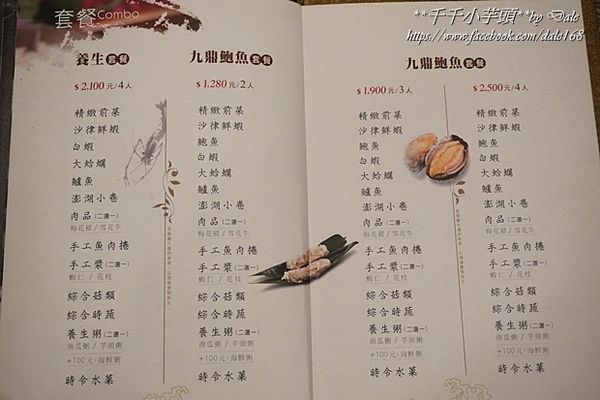 套餐 Combo
**千千小芋頭** by Dale
https://www.facebook.com/dale168
養生套餐
$2,100元/4人
精緻前菜
沙律鮮蝦
白蝦
大蛤蠣
鱸魚
澎湖小卷
肉品(二選一)
梅花豬/雪花牛
手工魚肉捲
手工漿(二選一)
蝦仁/花枝
綜合菇類
綜合時蔬
養生粥(二選一)
南瓜粥/芋頭粥
+100元:海鮮粥
時令水菓
九鼎鮑魚套餐
$1,280元/2人
精緻前菜
沙律鮮蝦
鮑魚
白蝦
大蛤蠣
鱸魚
澎湖小卷
肉品(二選一)
梅花豬/雪花牛
手工魚肉捲
手工漿(二選一)
蝦仁/花枝
綜合菇類
綜合時蔬
養生粥(二選一)
南瓜粥/芋頭粥
+100元:海鮮粥
時令水菓
九鼎鮑魚套餐
$1,900元/3人
精緻前菜
沙律鮮蝦
鮑魚
白蝦
大蛤蠣
鱸魚
澎湖小卷
肉品(二選一)
梅花豬/雪花牛
手工魚肉捲
手工漿(二選一)
蝦仁/花枝
綜合菇類
綜合時蔬
養生粥(二選一)
南瓜粥/芋頭粥
+100元:海鮮粥
時令水菓
$2,500元/4人
精緻前菜
沙律鮮蝦
鮑魚
白蝦
大蛤蠣
鱸魚
澎湖小卷
肉品(二選一)
梅花豬/雪花牛
手工魚肉捲
手工漿(二選一)
蝦仁/花枝
綜合菇類
綜合時蔬
養生粥(二選一)
南瓜粥/芋頭粥
+100元:海鮮粥
時令水菓